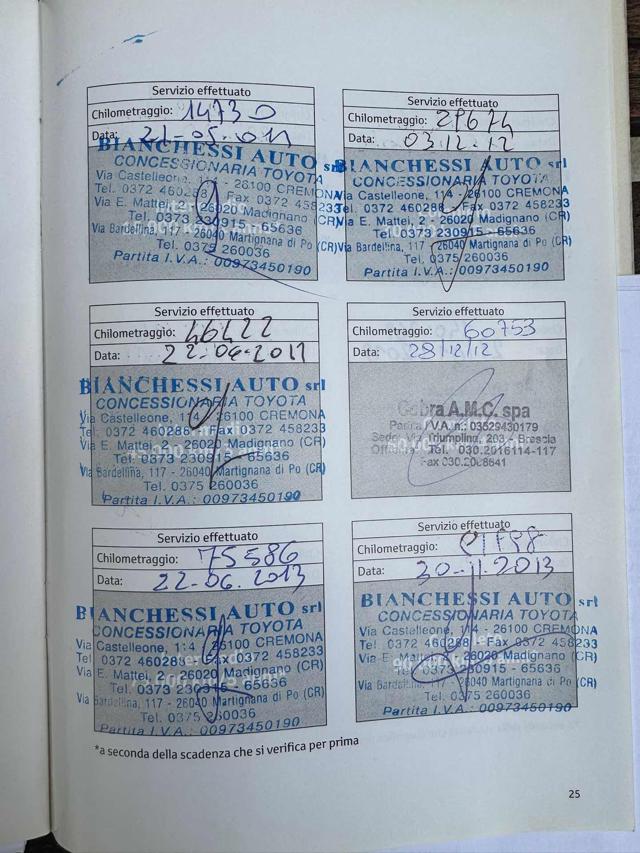 Servizio effettuato
Chilometraggio: 14730
Data:
BIANCHESSI AUTO srl
CONCESSIONARIA TOYOTA
Via Castelleone, 114 - 26100 CREMONA
Tel. 0372 460288 - Fax 0372 458233
Via E. Mattei, 2 - 26020 Madignano (CR)
Tel. 0373 230915 - 65636
Via Bardellina, 117 - 26040 Martignana di Po (CR)
Tel. 0375 260036
Partita I.V.A.: 00973450190
Servizio effettuato
Chilometraggio: 29674
Data: 03.12.12
BIANCHESSI AUTO srl
CONCESSIONARIA TOYOTA
Via Castelleone, 114 - 26100 CREMONA
Tel. 0372 460288 - Fax 0372 458233
Via E. Mattei, 2 - 26020 Madignano (CR)
Tel. 0373 230915 - 65636
Via Bardellina, 117 - 26040 Martignana di Po (CR)
Tel. 0375 260036
Partita I.V.A.: 00973450190
Servizio effettuato
Chilometraggio: 46422
Data:
BIANCHESSI AUTO srl
CONCESSIONARIA TOYOTA
Via Castelleone, 114 - 26100 CREMONA
Tel. 0372 460288 - Fax 0372 458233
Via E. Mattei, 2 - 26020 Madignano (CR)
Tel. 0373 230915 - 65636
Via Bardellina, 117 - 26040 Martignana di Po (CR)
Tel. 0375 260036
Partita I.V.A.: 00973450190
Servizio effettuato
Chilometraggio: 60753
Data: 28/12/12
Cobra A.M.C. spa
Partita I.V.A. n.: 03529430179
Sede: Via Triumplina, 203 - Brescia
Tel. 030.2016114-117
Fax 030.2008641
Servizio effettuato
Chilometraggio: 75586
Data: 22-06.2013
BIANCHESSI AUTO srl
CONCESSIONARIA TOYOTA
Via Castelleone, 114 - 26100 CREMONA
Tel. 0372 460288 - Fax 0372 458233
Via E. Mattei, 2 - 26020 Madignano (CR)
Tel. 0373 230915 - 65636
Via Bardellina, 117 - 26040 Martignana di Po (CR)
Tel. 0375 260036
Partita I.V.A.: 00973450190
Servizio effettuato
Chilometraggio:
Data: 30-11-2013
BIANCHESSI AUTO srl
CONCESSIONARIA TOYOTA
Via Castelleone, 114 - 26100 CREMONA
Tel. 0372 460288 - Fax 0372 458233
Via E. Mattei, 2 - 26020 Madignano (CR)
Tel. 0373 230915 - 65636
Via Bardellina, 117 - 26040 Martignana di Po (CR)
Tel. 0375 260036
Partita I.V.A.: 00973450190
*a seconda della scadenza che si verifica per prima
25